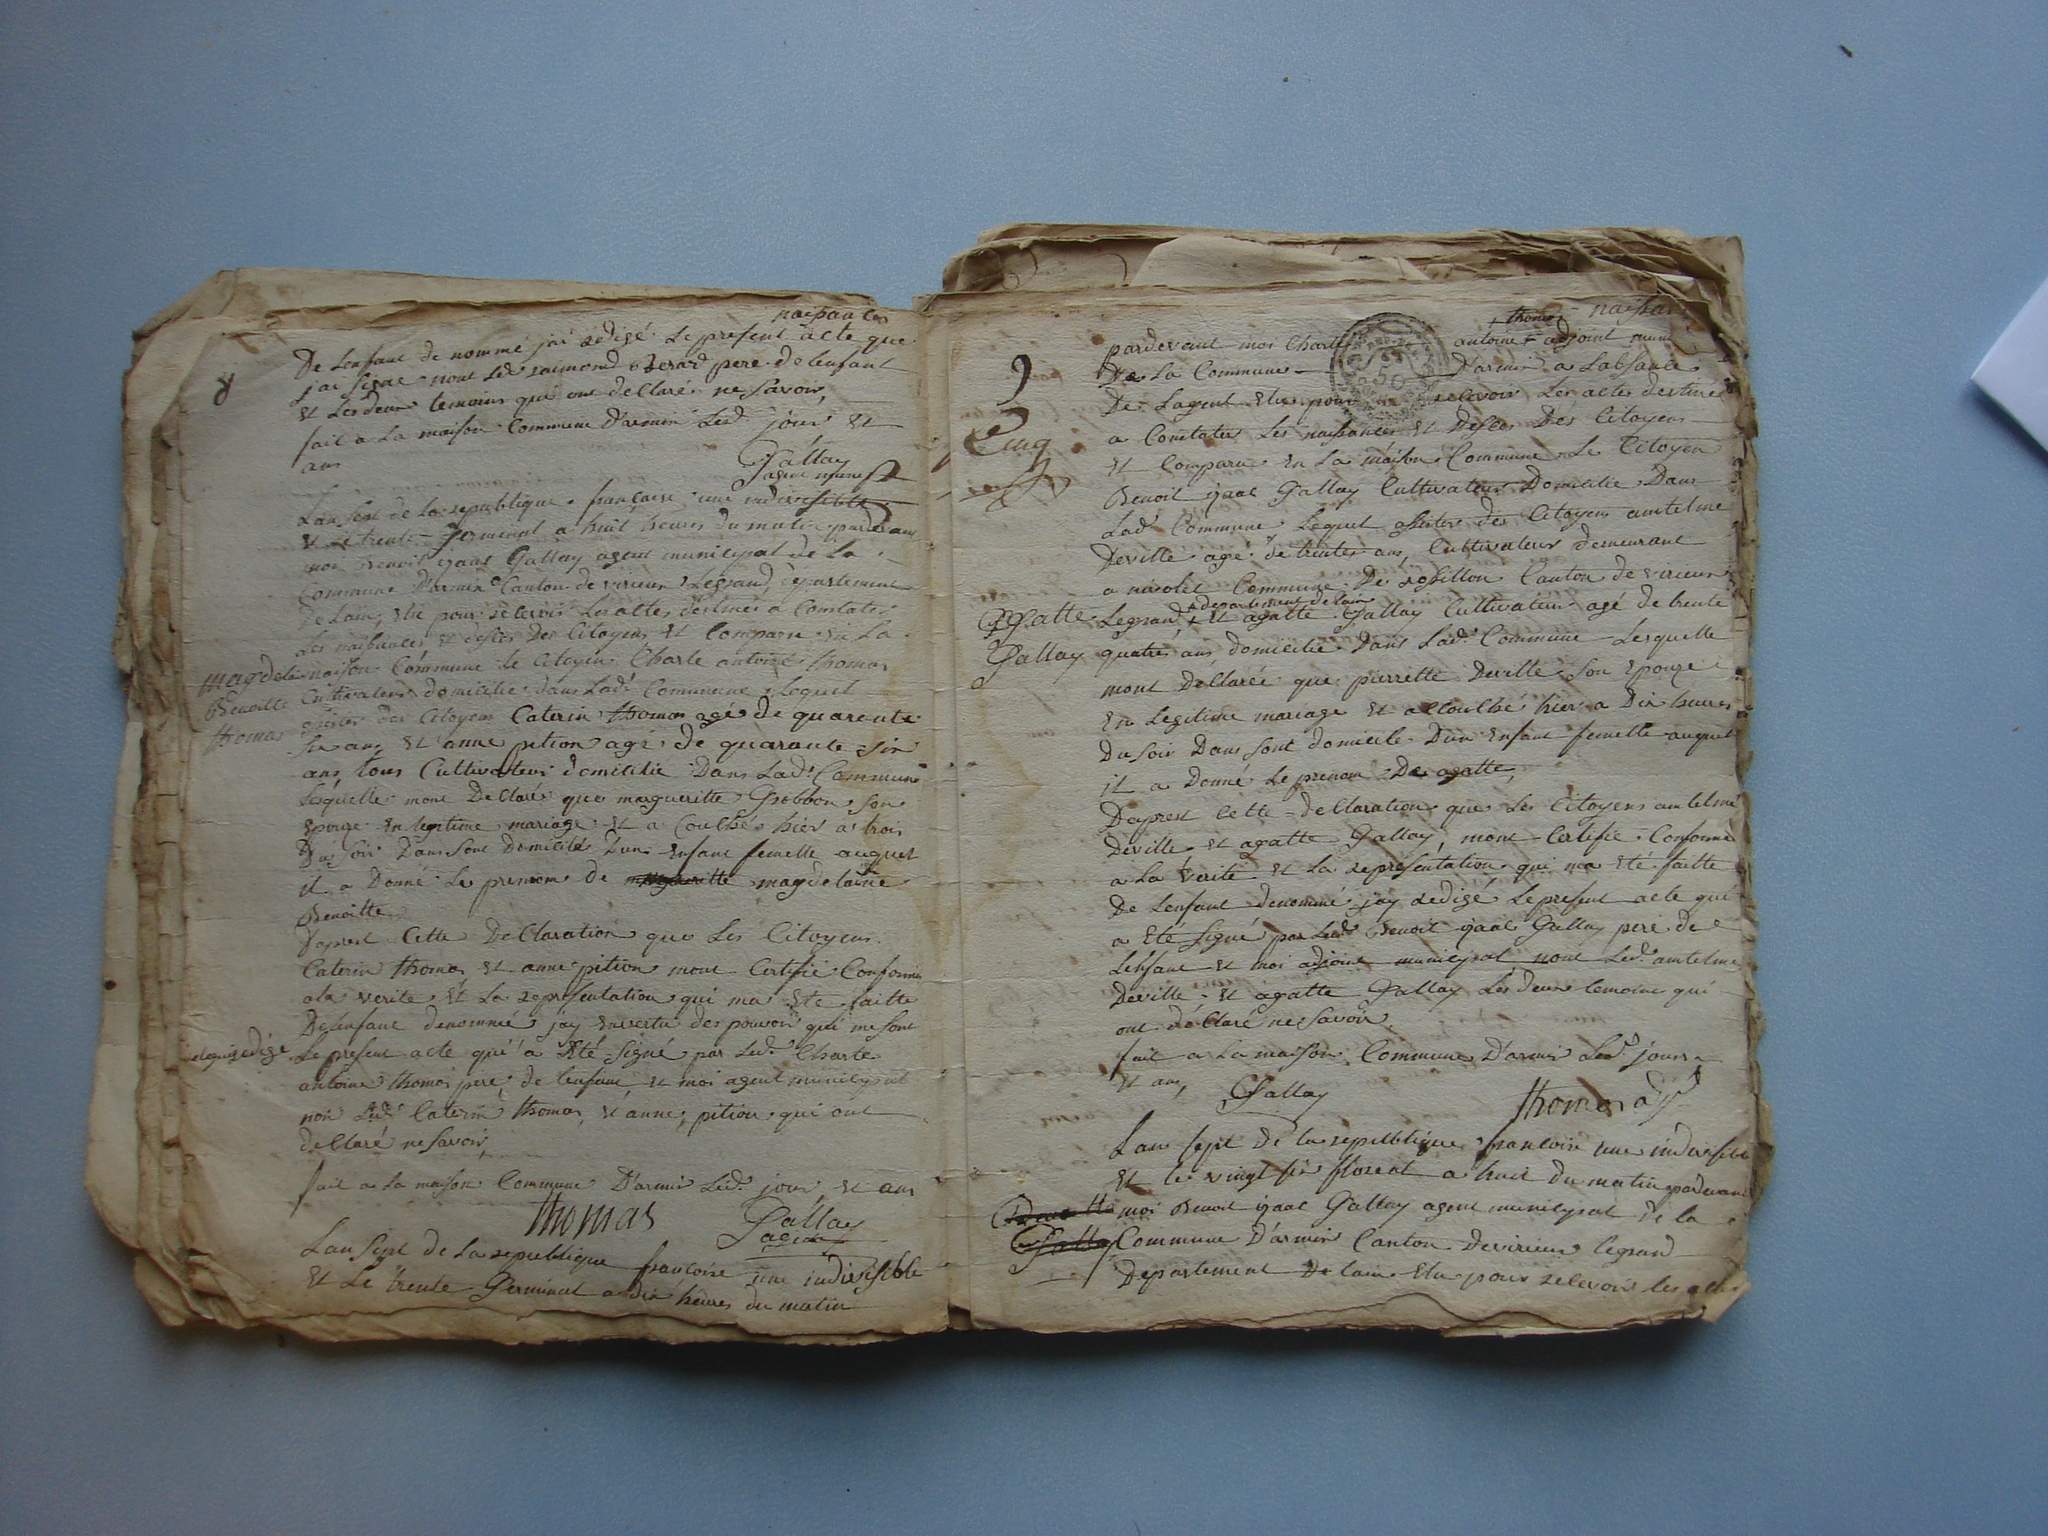 naissances
8
De Lenfant de nommé jai redigé Le present acte que
jai signé nont led raimond Berard pere de lenfant
Et Les deux temoins qui ont declaré ne Savoir,
fait a La maison Commune Darmin Led. jour Et
ans
Gallay
agent muni
Lan sept de La republique française une indivisible
Et Le trente Germinal a huit heures du matin pardevant
moi Benoit isaac Gallay agent municipal de La
Commune Darmin Canton de virieux Legrand, departement
De Lain, Elu pour recevoir Les actes destinés a Constater
Les naissances Et desces Des Citoyens Et Comparu En La
maison Commune le Citoyen Charle antoine thomas
Cultivateur domicilie dans Lad. Commune Lequel
assister des Citoyens Caterin thomas agé de quarente
six ans Et anne pition agé de quarante six
ans, tous Cultivateurs domicilie Dans Lad. Commune
Lesquelle mont Declaré que margueritte Grobbon son
Epouze En legitime mariage Et a Couché hier a trois
Du Soir Dans Sont Domicile Dun Enfant femelle auquel
il a Donné Le prenom de margueritte magdelaine
Benoitte
magdelaine
Benoitte
thomas
Daprest Cette DeClaration que Les Citoyens
Caterin thomas Et anne pition mont Certifié Conforme
a la verite Et La representation qui ma Ete faitte
De Lenfant denommé jay Envertu des pouvoir qui me sont
delegué redigé Le present acte qui a Eté Signé par Led. Charle
antoine thomas pere de Lenfant Et moi agent municipal
non Led. Caterin thomas, Et anne pition qui ont
deClaré ne Savoir,
fait a La maison Commune Darmin Led. jour Et ans
thomas Gallay
agent
Lan Sept de La republique françoise une indivisible
Et Le trente Germinal a dix heures du matin
thomas naissan
9
Cinq
pardevant moi Charle antoine adjoint muni
De La Commune Darmin a Labsance
De Lagent Elu pour recevoir Les actes destinés
a Constater Les naissances Et Desces Des Citoyens
Et Comparu En La maison Commune Le Citoyen
Benoit isaac Gallay Cultivateur Domicilie Dans
Lad. Commune Lequel assister des Citoyens antelme
Deville agé de trente ans, Cultivateur demeurant
a nivolet Commune De rossillon Canton de virieux
departement de lain
Legrand, Et agatte Gallay Cultivateur agé de trente
quatre ans domicilie Dans Lad. Commune Lesquelle
agatte
Gallay
mont Declarée que pierrette Deville Son Epouze
En Legitime mariage Et a Couché hier a Dix heures
Du soir Dans Sont domicile Dun Enfant femelle auquel
il a Donné Le prenom De agatte,
Daprest Cette declaration que Les Citoyens antelme
Deville Et agatte Gallay, mont Certifie Conforme
a La verité Et La representation qui ma Eté faitte
De Lenfant denommé jay redigé Le present acte qui
a Eté Signé par Led. Benoit isaac Gallay pere de
Lenfant Et moi adjoint municipal nont Led. antelme
Deville Et agatte Gallay Les deux temoins qui
ont declaré ne Savoir,
fait a La maison Commune Darmin Led. jour
Et ans,
Gallay thomas adj
Lan sept de La republique françoise une indivisible
Et le vingt six floreal a huit du matin pardevant
moi Benoit isaac Gallay agent municipal de la
Commune Darmin Canton de virieux legrand
Departement De lain Elu pour recevoir les actes
Gallay